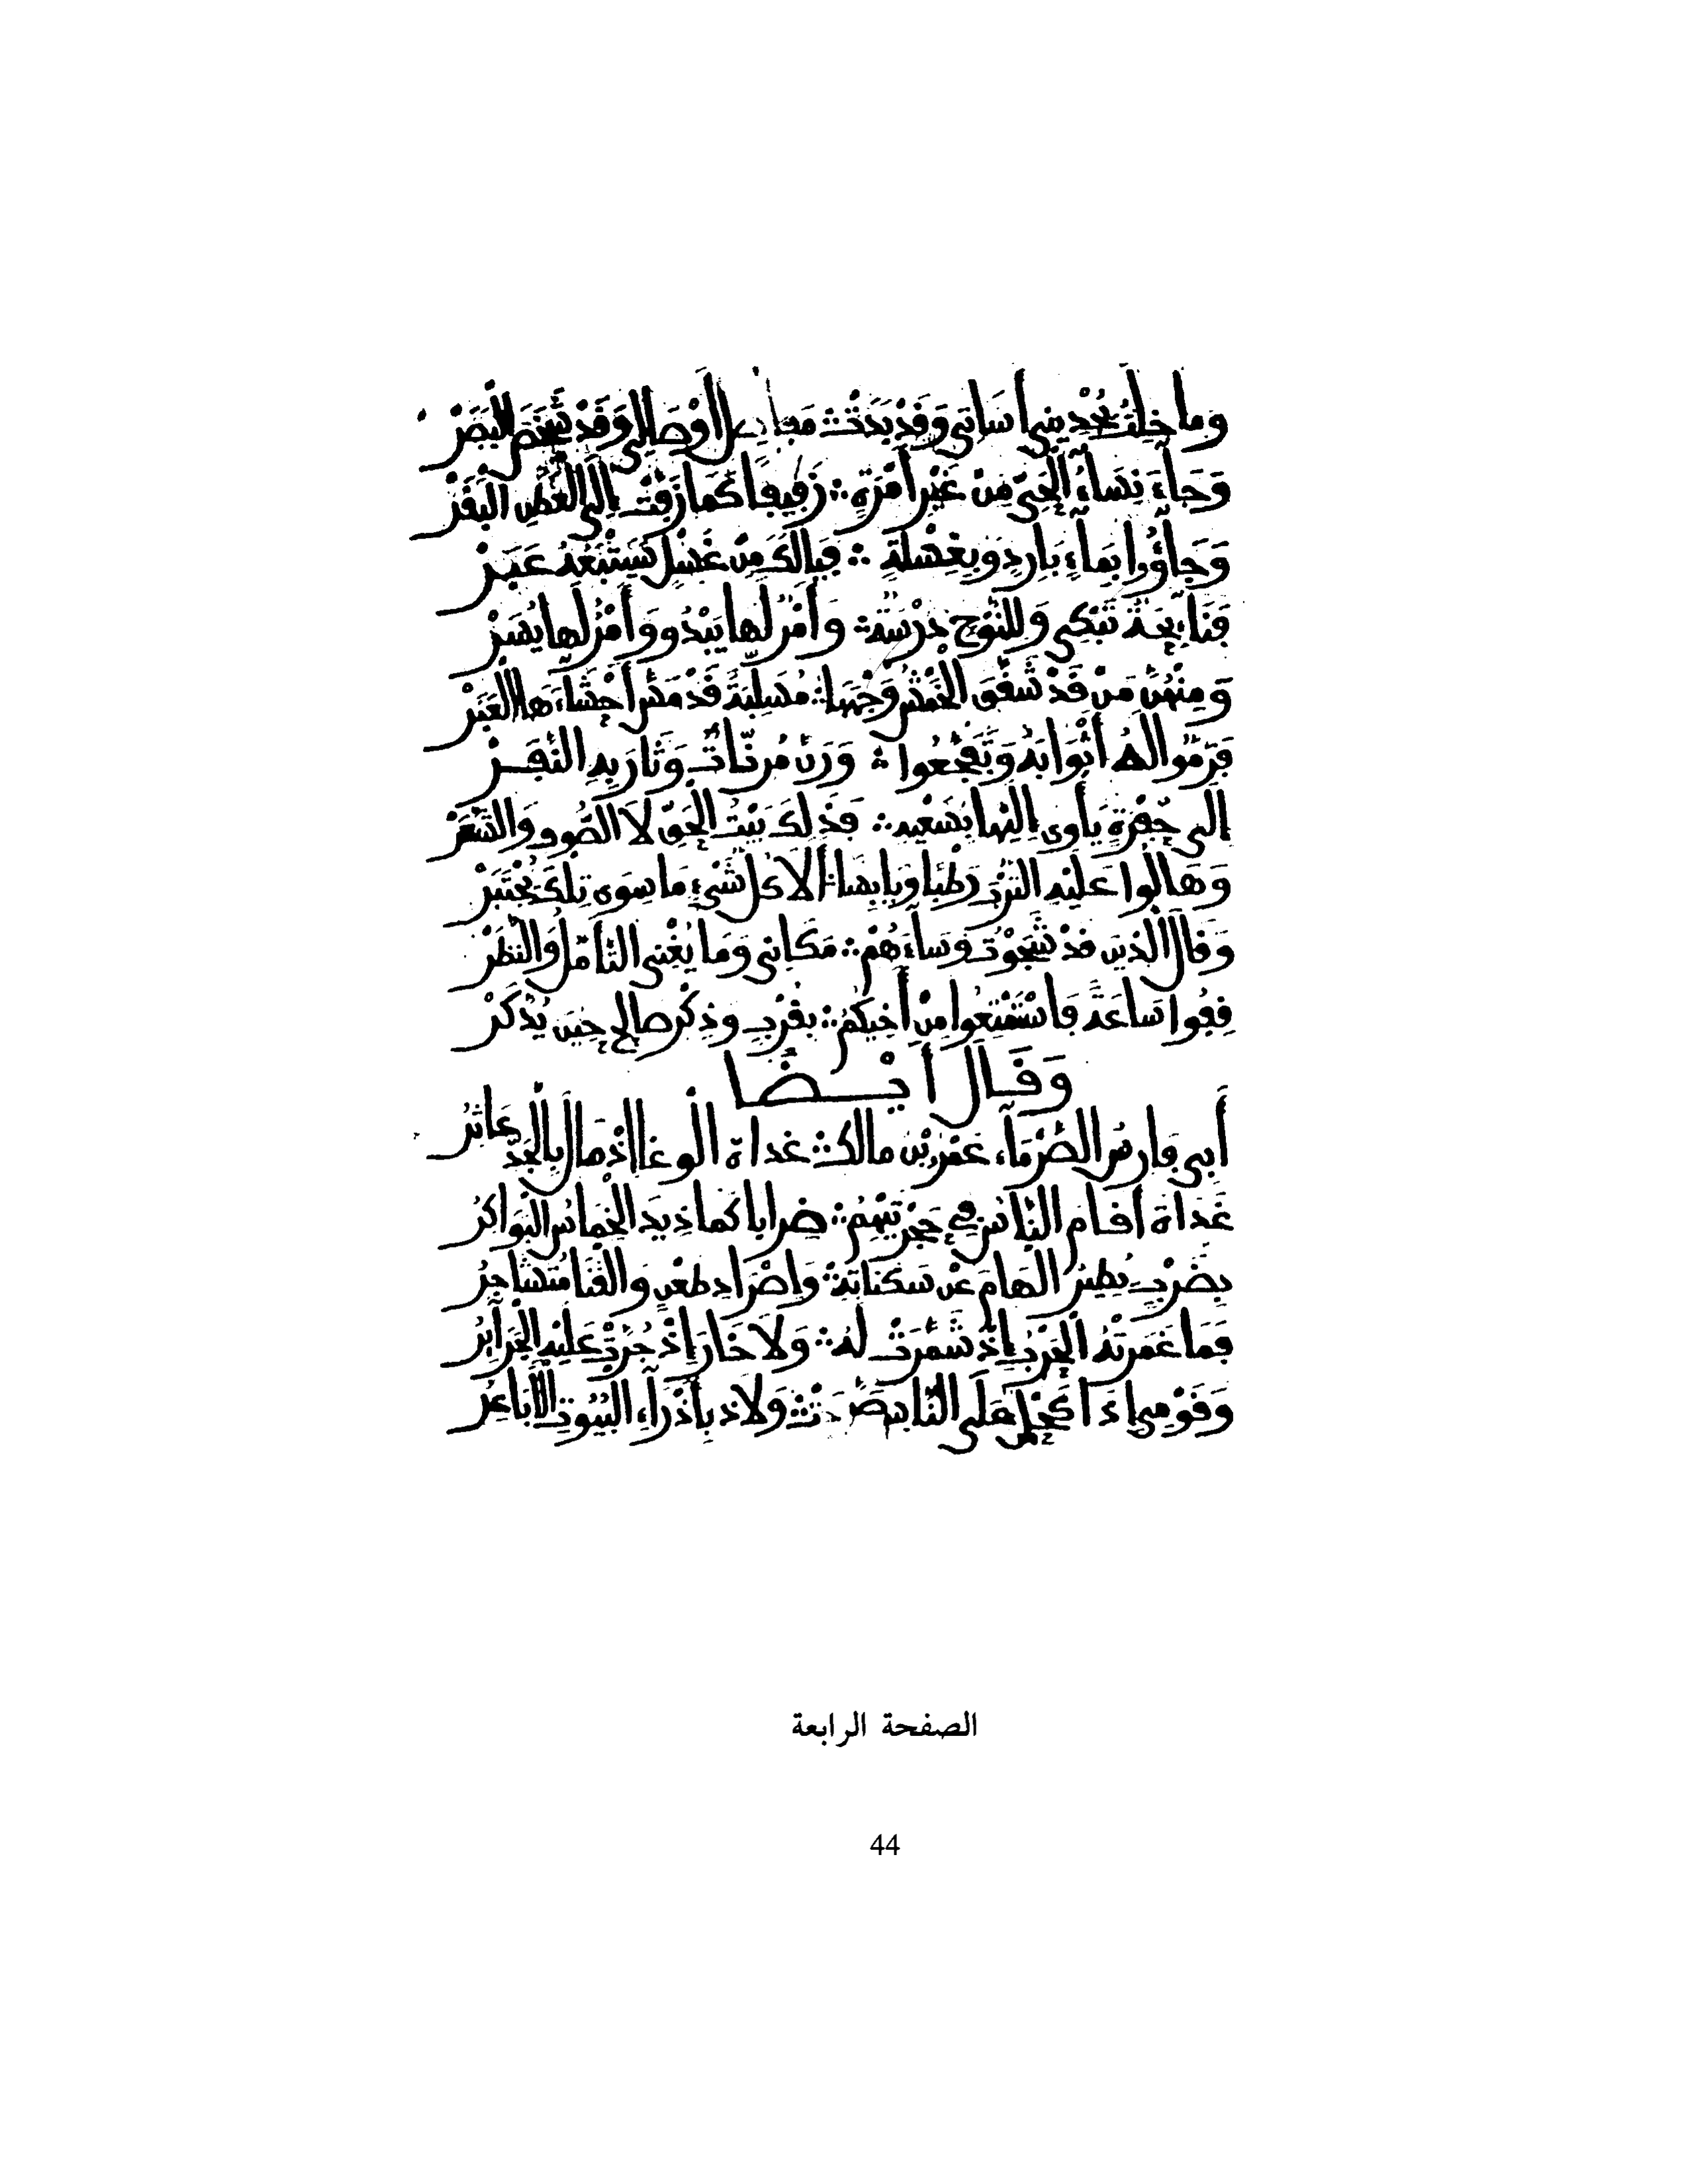 وما خِلْتُ يُجْدِينِى أَسَاتِى وَقَدْ بَدَتْ ∴ مَفَاصِلُ أَوْصَالِى وَقَدْ شَخَصَ الْبَصَرْ
وَجَآءَ نِسَاءُ الْحَىِّ مِنْ غَيْرِ أَمْرَةٍ ∴ زَفِيفاً كَمَا زَفَّتْ إِلَى الْعَطَنِ الْبَقَرْ
وَجَآؤُوا بِمَآءٍ بَارِدٍ وَبِغِسْلَةٍ ∴ فَيَالَكَ مِنْ غُسْلٍ سَيَتْبَعُهُ عَبَرْ
فَنَائِحَةٌ تَبْكِى وَلِلنَّوْحِ دَرْسَةٌ ∴ وَأَمْرٌ لَها يَبْدُو وَأَمْرٌ لَها يُسَرْ
وَمِنْهُنَّ مَنْ قَدْ شَقَّقَ الْخَمْشُ وَجْهَها ∴ مُسَلِّبَةٌ قَدْ مَسَّ أَحْشَآءَهَا الْعَبَرْ
فَرَمُّوا لَهُ أَثْوَابَهُ وَتَفَجَّعُوا ∴ وَرَنَّ مُرِنَّاتٌ وَثَارَ بِهِ النَّفَرْ
إِلَى حُفْرَةٍ يَأْوِى إِلَيْها بِسَعْيِهِ ∴ فَذَلِكَ بَيْتُ الْحَقِّ لاَ الصُّوفِ وَالشَّعَرْ
وَهَالُوا عَلَيْهِ التُّرْبَ رَطْباً وَيَابِساً ∴ أَلاَ كُلُّ شَىْءٍ مَا سِوَى تِلْكَ يُجْتَبَرْ
وَقَالَ الَّذِينَ قَدْ شَجَوْتُ وَسَآءَهُمْ ∴ مَكَانِى وَمَا يُغْنِى التَّأَمُّلُ وَالنَّظَرْ
قِفُوا سَاعَةً فَاسْتَمْتِعُوا مِنْ أَخِيكُمُ ∴ بِقُرْبٍ وَذِكْرٍ صالِحٍ حِينَ يُدَّكَرْ
وَقَالَ أَيْضًا
أَبِى فارِسُ الضَّرْمَآءِ عَمْرُو بْنُ مالِكٍ ∴ غَداةَ الْوغا إِذْ مَالَ بِالْجَدِّ عَاثِرُ
غَدَاةَ أَقامَ النَّاسَ فِى حَجْرَتَيْهِمُ ∴ ضِراباً كما ذِيدَ الْخِمَاسُ الْبَوَاكِرُ
بِضَرْبٍ يُطِيرُ الْهَامَ عَنْ سَكَنَاتِهِ ∴ وَإِصْرَادِ طَعْنٍ وَالْقَنَا مُتَشَاجِرُ
فَمَا غَمَرَتْهُ الْحَرْبُ إِذْ شَمَّرَتْ لَهُ ∴ وَلاَ خَارَ إِذْ جُرَّتْ عَلَيْهِ الْجَرَآئِرُ
وَقَوْمِى إِذَا كَحْلٌ عَلَى النَّاسِ صَرَّحَتْ ∴ وَلاَذَ بِأَذْرَآءِ الْبُيُوتِ الْأَبَاعِرُ
الصفحة الرابعة
44